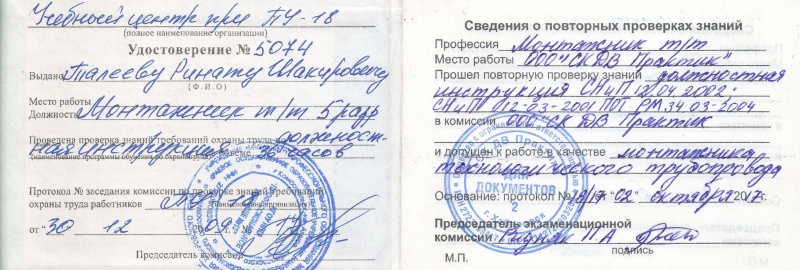 Учебный центр при ПУ-18
(полное наименование организации)
Удостоверение № 5074
Выдано Талееву Ринату Шакировичу
(Ф.И.О)
Место работы
Должность Монтажник т/т 5 разр
Проведена проверка знаний требований охраны труда должност-
ная инструкция
(наименование программы обучения по охране труда) часов
Протокол № заседания комиссии по проверке знаний требований
охраны труда работников
(наименование организации)
от "30" 12
Председатель комиссии
Сведения о повторных проверках знаний
Профессия Монтажник т/т
Место работы ООО "СК ДВ Практик"
Прошел повторную проверку знаний должностная
инструкция СНиП 12.04.2002.
СНиП 12-03-2001 ПОТ РМ.34.03-2004
в комиссии ООО СК ДВ Практик
и допущен к работе в качестве монтажника
технологического трубопровода
Основание: протокол № "02" октября 2017г.
Председатель экзаменационной
комиссии П.А
подпись
М.П.
ДВ Практик
ДЛЯ
ДОКУМЕНТОВ
2
г. Хабаровск